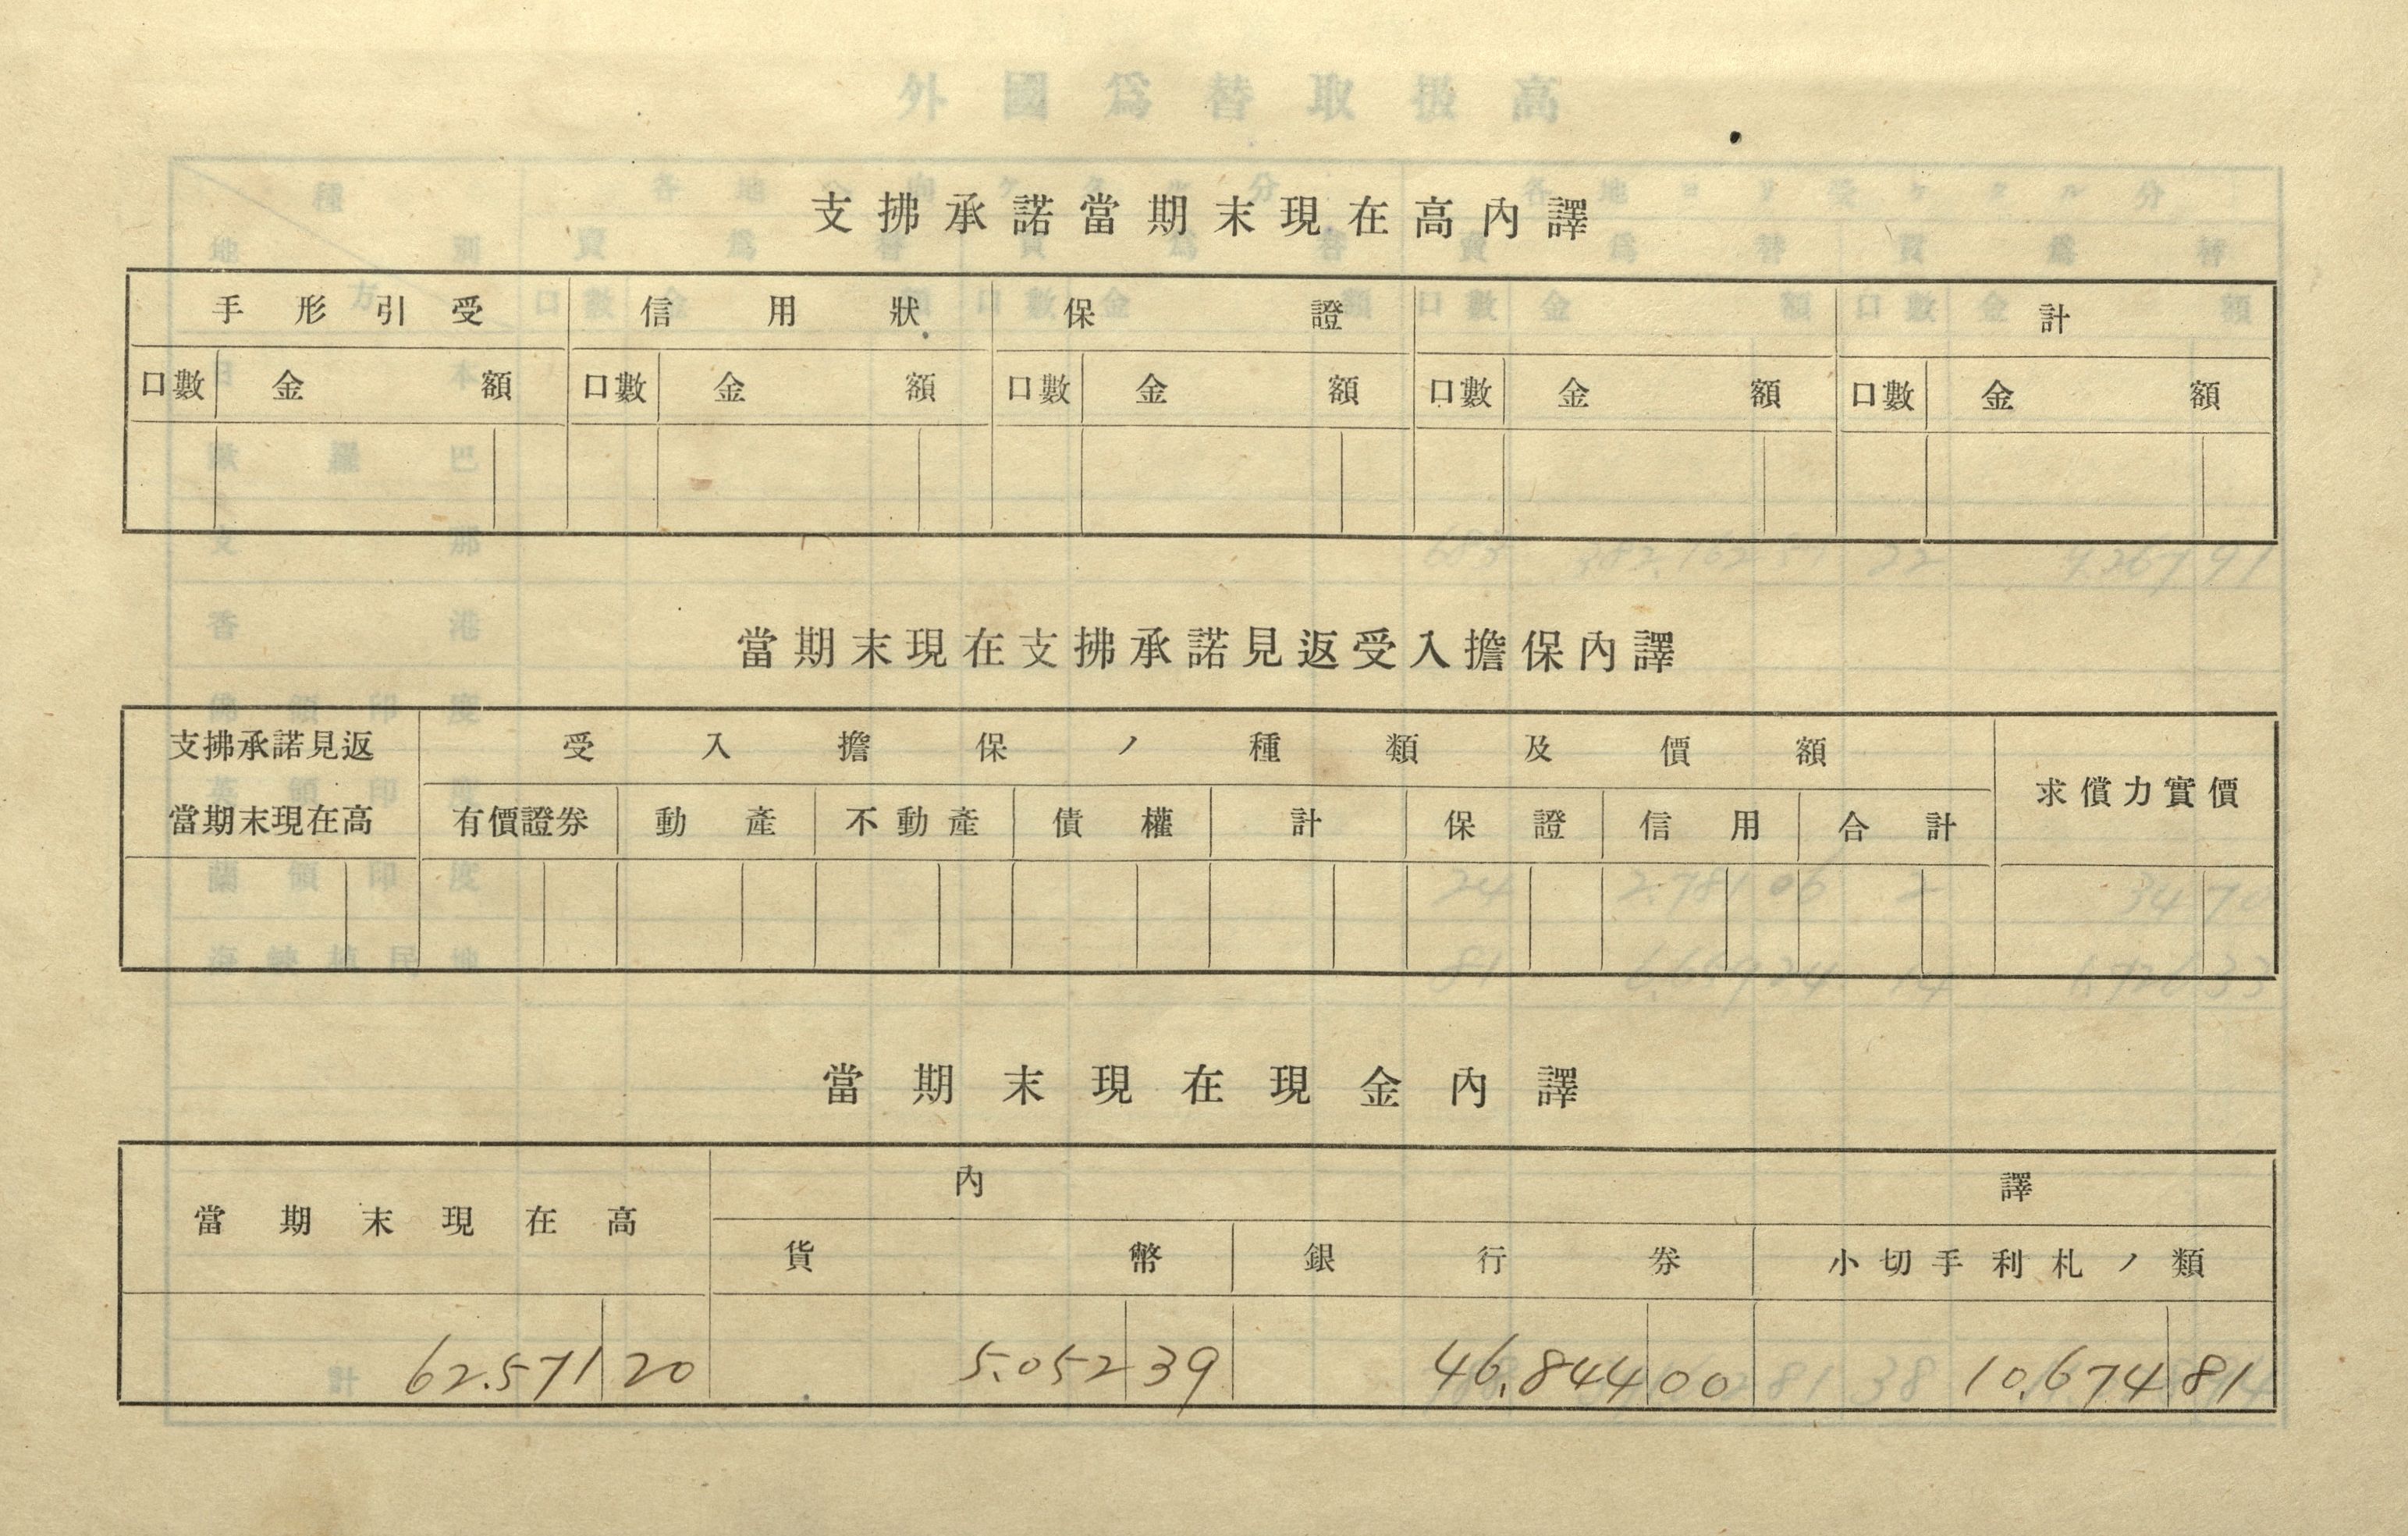 支拂承諾當期末現在高內譯
手形引受 信用狀 保證 計
口數 金額 口數 金額 口數 金額 口數 金額 口數 金額
當期末現在支拂承諾見返受入擔保內譯
支拂承諾見返 受入擔保ノ種類及價額 求償力實價
當期末現在高 有價證券 動產 不動產 債權 計 保證 信用 合計
當期末現在現金內譯
當期末現在高 內譯
貨幣 銀行券 小切手利札ノ類
62.571 20 5.052 39 46.844 00 10.674 81